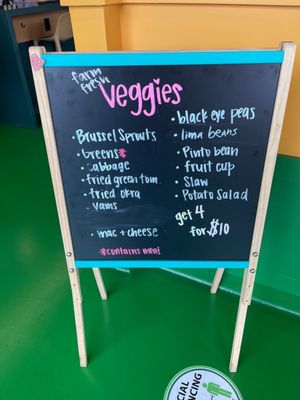 farm
fresh
Veggies
• Brussel Sprouts
• Greens*
• cabbage
• fried green tom
• fried okra
• yams
• mac + cheese
*contains meat
• black eye peas
• lima beans
• Pinto bean
• fruit cup
• Slaw
• Potato Salad
get 4
for $10